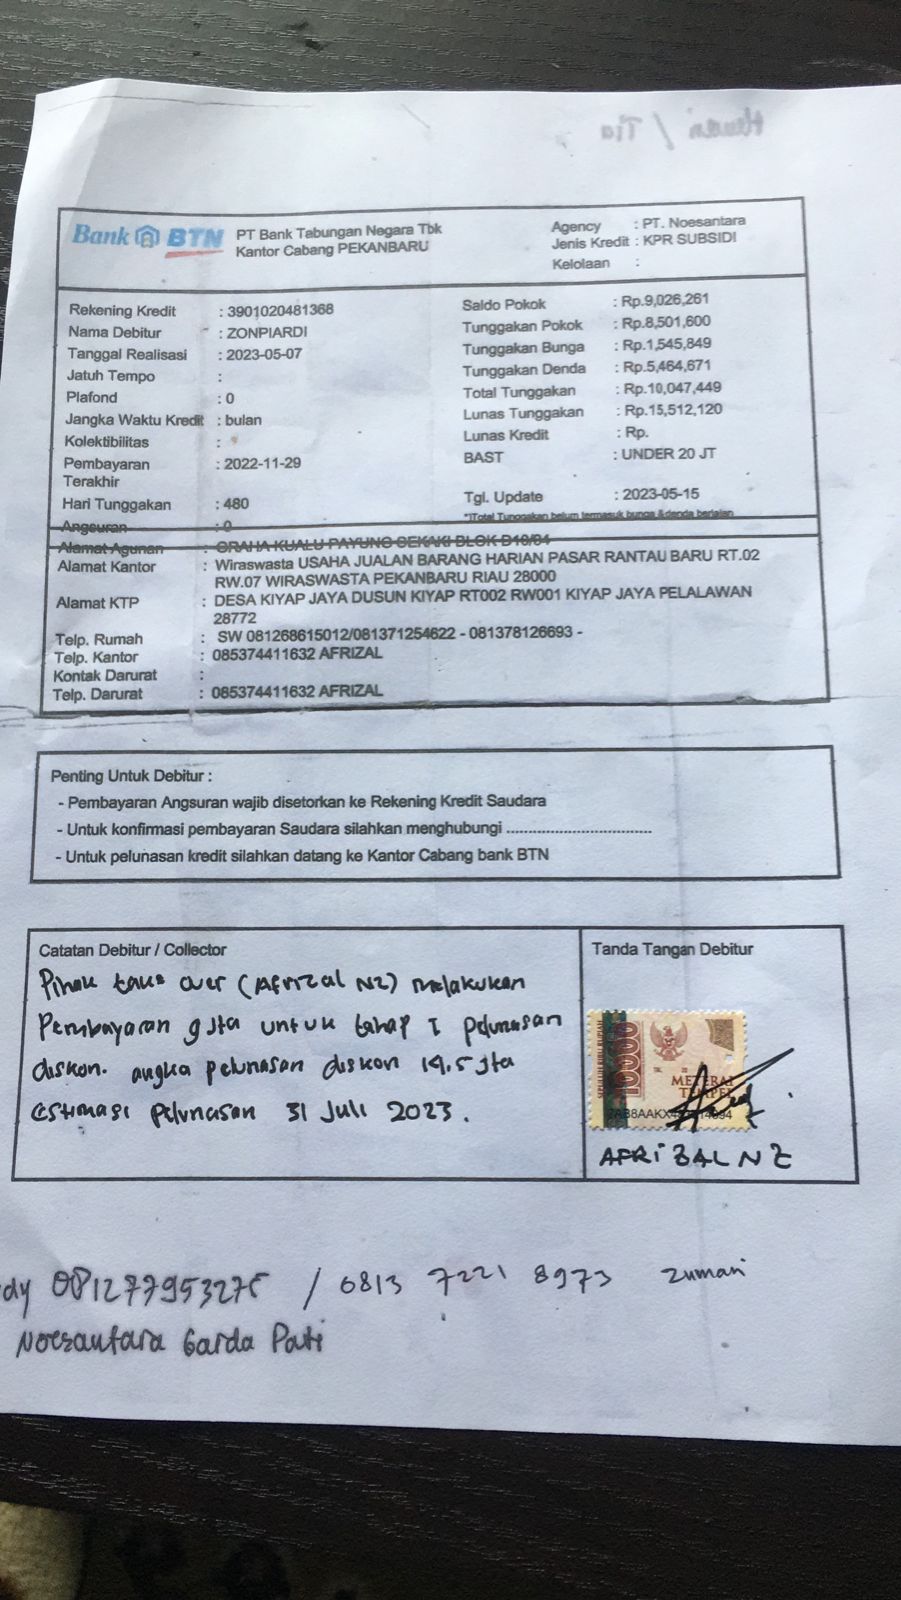 Bank BTN
PT Bank Tabungan Negara Tbk
Kantor Cabang PEKANBARU
Agency : PT. Noesantara
Jenis Kredit : KPR SUBSIDI
Kelolaan :
Rekening Kredit : 3901020481368
Nama Debitur : ZONPIARDI
Tanggal Realisasi : 2023-05-07
Jatuh Tempo :
Plafond : 0
Jangka Waktu Kredit : bulan
Kolektibilitas :
Pembayaran Terakhir : 2022-11-29
Hari Tunggakan : 480
Angsuran : 0
Saldo Pokok : Rp.9,026,261
Tunggakan Pokok : Rp.8,501,600
Tunggakan Bunga : Rp.1,545,849
Tunggakan Denda : Rp.5,464,671
Total Tunggakan : Rp.10,047,449
Lunas Tunggakan : Rp.15,512,120
Lunas Kredit : Rp.
BAST : UNDER 20 JT
Tgl. Update : 2023-05-15
*)Total Tunggakan belum termasuk bunga &denda berjalan
Alamat Agunan : GRAHA KUALU PAYUNG SEKAKI BLOK
Alamat Kantor : Wiraswasta USAHA JUALAN BARANG HARIAN PASAR RANTAU BARU RT.02
RW.07 WIRASWASTA PEKANBARU RIAU 28000
Alamat KTP : DESA KIYAP JAYA DUSUN KIYAP RT002 RW001 KIYAP JAYA PELALAWAN
28772
Telp. Rumah : SW 081268615012/081371254622 - 081378126693 -
Telp. Kantor : 085374411632 AFRIZAL
Kontak Darurat :
Telp. Darurat : 085374411632 AFRIZAL
Penting Untuk Debitur :
- Pembayaran Angsuran wajib disetorkan ke Rekening Kredit Saudara
- Untuk konfirmasi pembayaran Saudara silahkan menghubungi .................................
- Untuk pelunasan kredit silahkan datang ke Kantor Cabang bank BTN
Catatan Debitur / Collector
Pihak take over (Afrizal NZ) melakukan
Pembayaran 9 Jta untuk tahap I pelunasan
diskon. angka pelunasan diskon 14,5 Jta
Estimasi Pelunasan 31 Juli 2023.
Tanda Tangan Debitur
SEPULUH RIBU RUPIAH
10000
METERAI
TEMPEL
AFRIZAL NZ
dy 081277953275 / 0813 7221 8973 Zumari
Noesantara Garda Pati